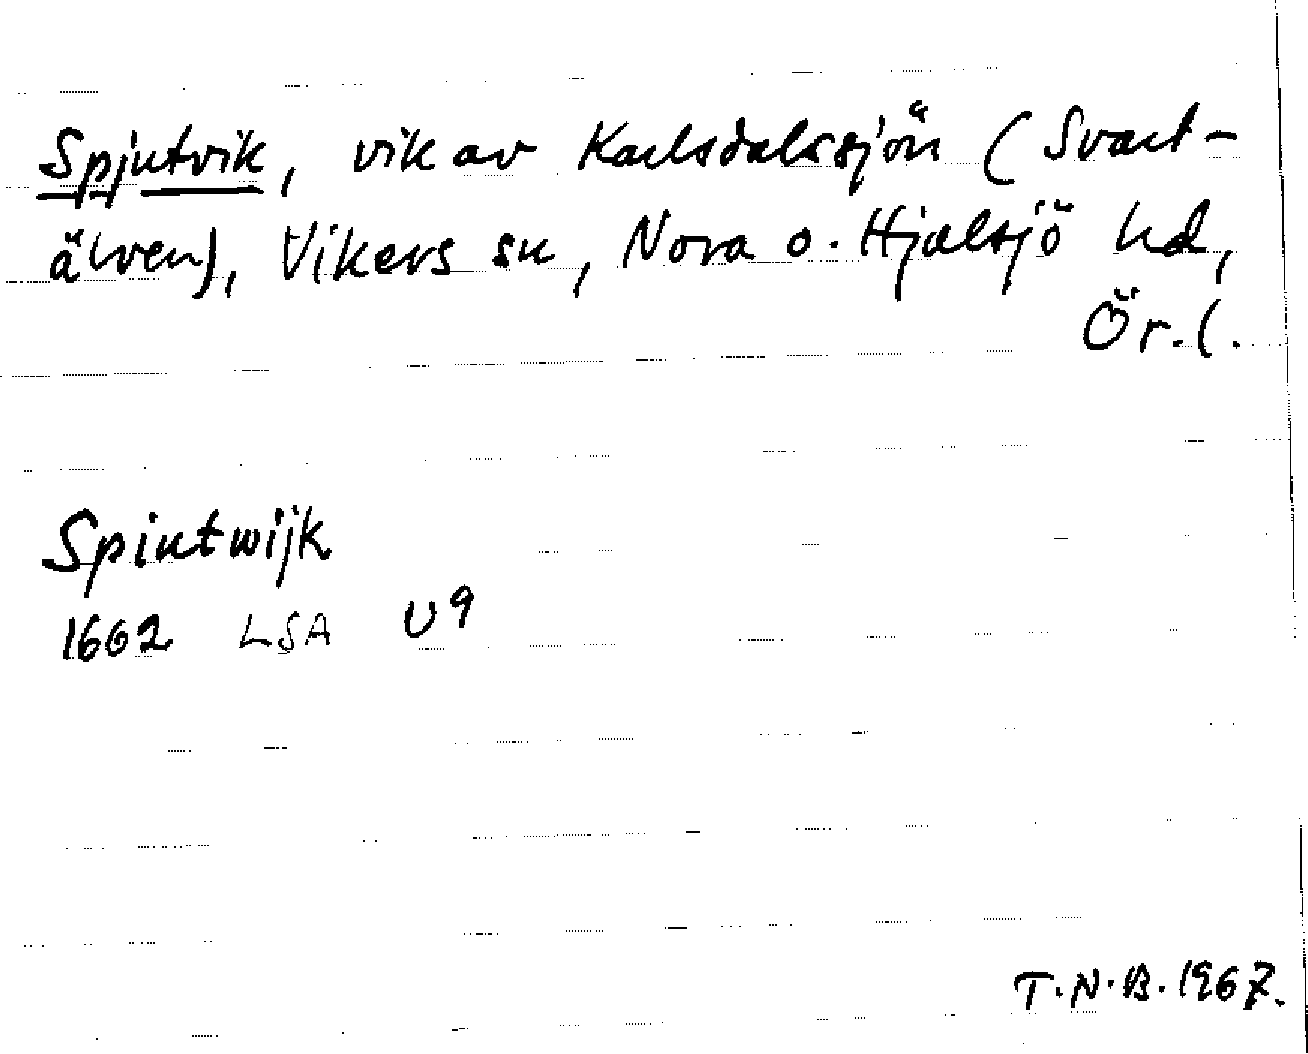 Spjutvik, vik av Karlsdalssjön (Svart-
älven), Vikers sn, Nora o. Hjulsjö hd,
Ör.l.
Spiutwijk
1662 LSA U9
T.N.B. 1967.